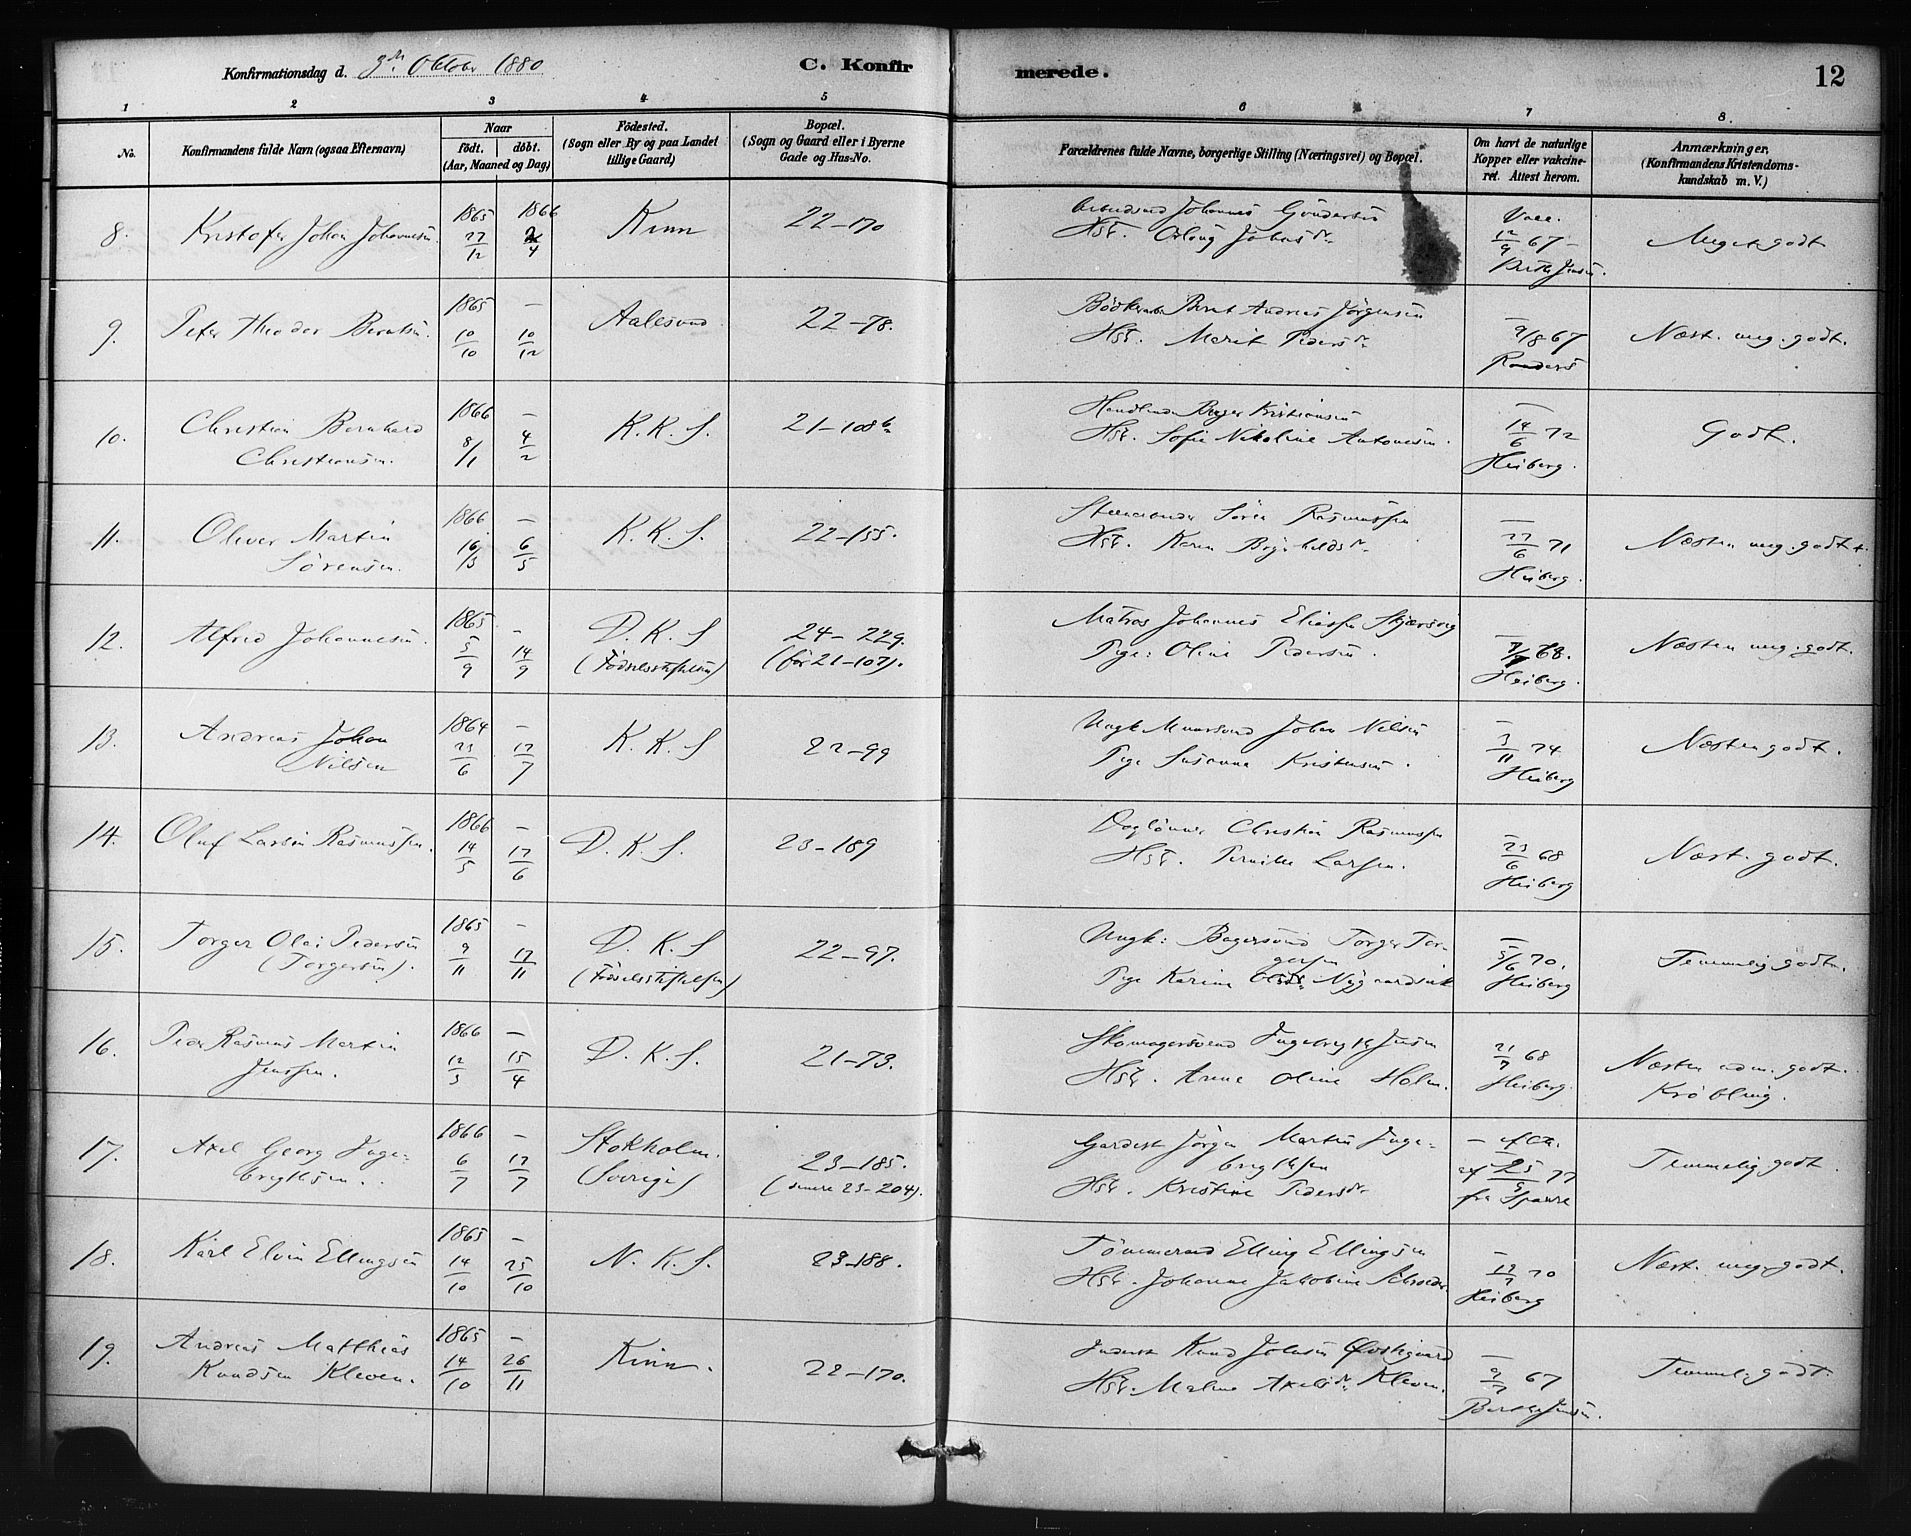 Konfirmationsdag d. 3die Oktober 1880 C. Konfirmerede. 12
1 2 3 4 5 6 7 8.
No. Konfirmandens fulde Navn (ogsaa Efternavn)
Naar
födt. döbt.
(Aar, Maaned og Dag)
Födested.
(Sogn eller By og paa Landet
tillige Gaard)
Bopæl.
(Sogn og Gaard eller i Byerne
Gade og Hus-No.
Forældrenes fulde Navne, borgerlige Stilling (Næringsvei) og Bopæl.
Om havt de naturlige
Kopper eller vakcine-
ret. Attest herom.
Anmærkninger,
(Konfirmandens Kristendoms-
kundskab m. V.)
8. Kristofer Johan Johannesen 1865 27/12 1866 2/4 Kinn 22-170
Arbeidsmd Johannes Gundersen
Hst. Johns dr.
Vacc.
12/9 67-
Meget godt
9. Peter Theodor Berntsen. 1865 10/10 — 10/12 Aalesund 22-78.
Bernt Andreas Jörgensen
Hst. Marit Peders dr.
—
9/8 67
Randers
Næst. meg. godt.
10. Christian Bernhard
Christiansen. 1866 8/1 — 4/2 K.K.S. 21-108b
Birger Kristiansen
Hst. Sofie Nikoline Antonesen.
—
14/6 72
Heiberg.
Godt.
11. Oliver Martin
Sörensen. 1866 16/3 — 6/5 K.K.S. 22-155.
Sören Rasmussen
Hst. Karen Brynhilds dr.
—
27/6 71
Heiberg.
Næsten meg. godt.
12. Alfred Johannesen. 1865 5/9 — 14/9 D.K.S
(Födselsstiftelsen) 24-229.
(för 21-107).
Matros Johannes Eliassen Skjærvig
Pige: Oline Pedersen.
68.
Heiberg.
Næsten meg. godt.
13. Andreas Johan
Nilsen 1864 23/6 — 17/7 K.K.S 22-99
Ungk. Muursvend Johan Nilsen
Pige Susanna Kristensen.
—
3/11 74
Heiberg
Næsten godt.
14. Oluf Larsen Rasmussen. 1866 14/5 — 17/6 D.K.S. 23-189
Daglönner Christian Rasmussen
Hst. Pernille Larsen.
23/6 68
Heiberg
Næst. godt.
15. Torger Olai Pedersen
(Torgersen). 1865 9/11 — 17/11 D.K.S
(Födselsstiftelsen) 22-97.
Ungk: Bagersvend Torger Tor-
gersen
Pige Karine Olsdr. Nygaardsvik
—
5/6 70.
Heiberg
Temmelig godt.
16. Peder Rasmus Martin
Jenssen. 1866 12/3 — 15/4 D.K.S. 21-73.
Skomagersvend Ingebrigt Jensen
Hst. Anne Oline Holm.
21/7 68
Heiberg.
Næsten godt.
Kröbling.
17. Axel Georg Inge-
brigtsen. 1866 6/7 — 17/7 Stokholm.
(Sverige) 23-185.
(senere 23-204).
Gardist Jörgen Martin Inge-
brigtsen
Hst. Kristine Pedersdr.
— 
af 25/5 77
fra Sparre
Temmelig godt.
18. Karl Elvin Ellingsen 1865 14/10 — 25/10 N.K.S. 23-188.
Tömmermd Elling Ellingsen
Hst. Johanne Jakobine Schroeder.
—
70
Heiberg
Næst. meg. godt.
19. Andreas Matthias
Knudsen Kleven. 1865 14/10 — 26/11 Kinn. 22-170.
Knud Johnsen
Hst. Maline Axels dr. Kleven.
—
9/7 67
Temmeli. godt.